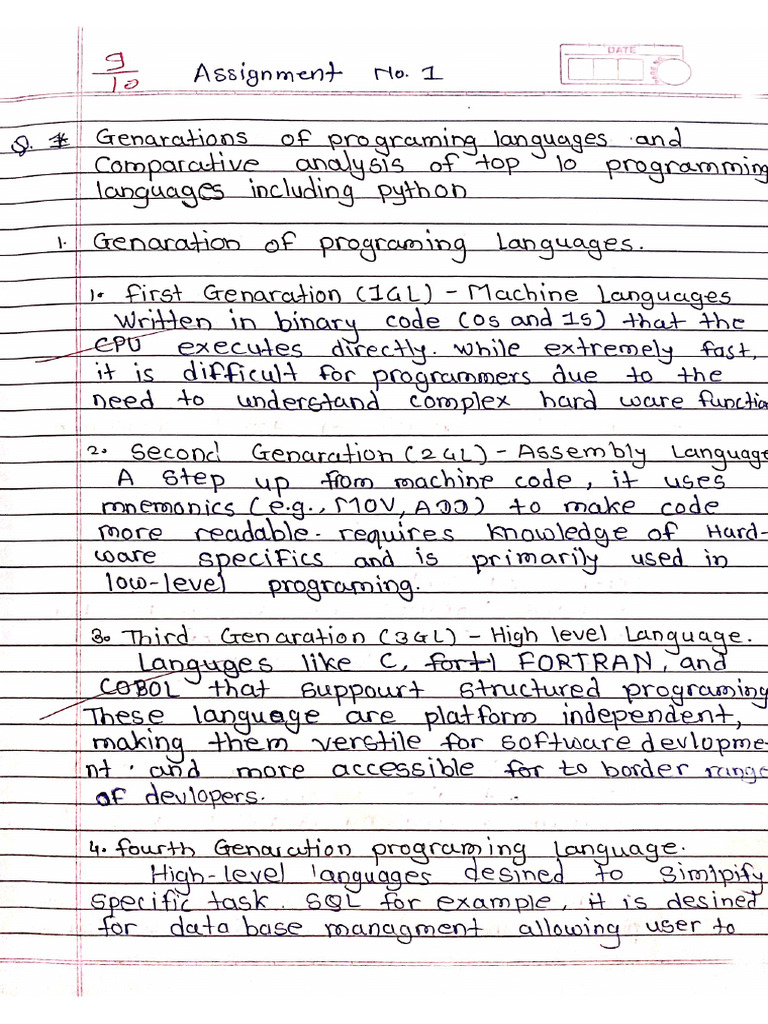 9/10 Assignment No. 1 DATE
Q. * Genarations of programing languages and
Comparative analysis of top 10 programming
languages including python
1. Genaration of programing Languages.
1. first Genaration (1GL) - Machine Languages
Written in binary code (0s and 1s) that the
CPU executes directly. while extremely fast,
it is difficult for programmers due to the
need to understand complex hard ware function
2. Second Genaration (2GL) - Assembly Language
A step up from machine code, it uses
mnemonics (e.g., MOV, ADD) to make code
more readable. requires knowledge of Hard-
ware specifics and is primarily used in
low-level programing.
3. Third Genaration (3GL) - High level Language.
Languges like C, fort FORTRAN, and
COBOL that suppourt structured programing
These language are platform independent,
making them verstile for software devlopme-
nt. and more accessible for to border range
of devlopers.
4. fourth Genaration programing Language.
High-level languages desined to simlpify
specific task. SQL for example, it is desined
for data base managment allowing user to